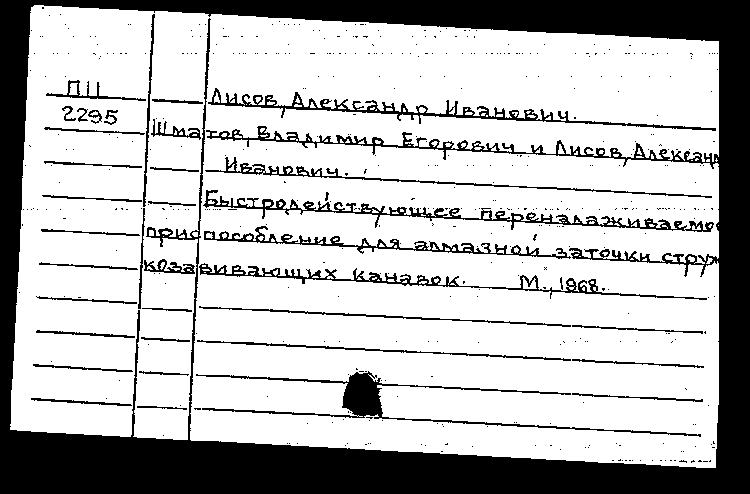 ПII
2295
Лисов, Александр Иванович.
Шматов, Владимир Егорович и Лисов, Александ
Иванович.
Быстродействующее переналаживаемое
приспособление для алмазной заточки струж
козавивающих канавок. М., 1968.